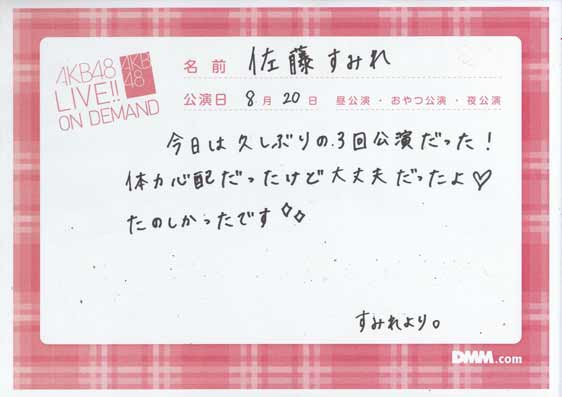 AKB48
LIVE!!
ON DEMAND
AKB
48
名前 佐藤すみれ
公演日 8月20日 昼公演・おやつ公演・夜公演
今日は久しぶりの3回公演だった!
体力心配だったけど大丈夫だったよ♡
たのしかったです
すみれより。
DMM.com